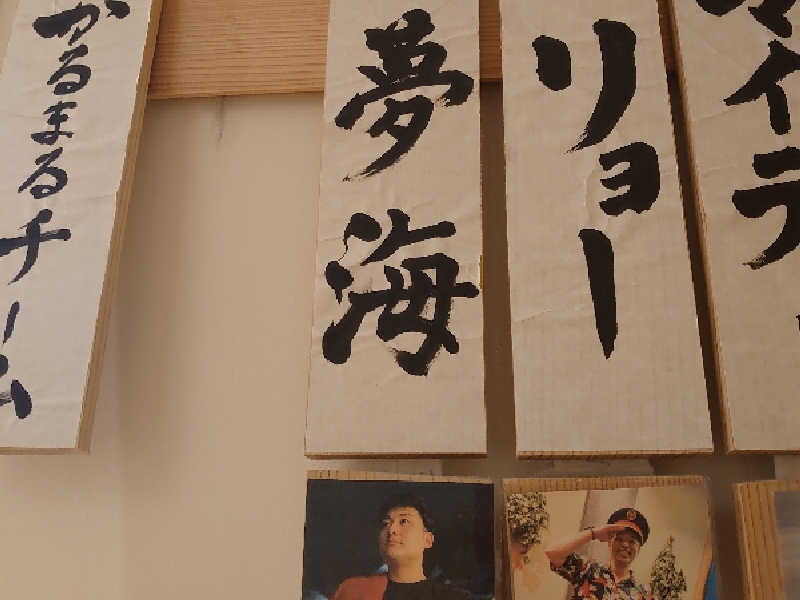 マイテ
リョー
夢海
かるまるチーム